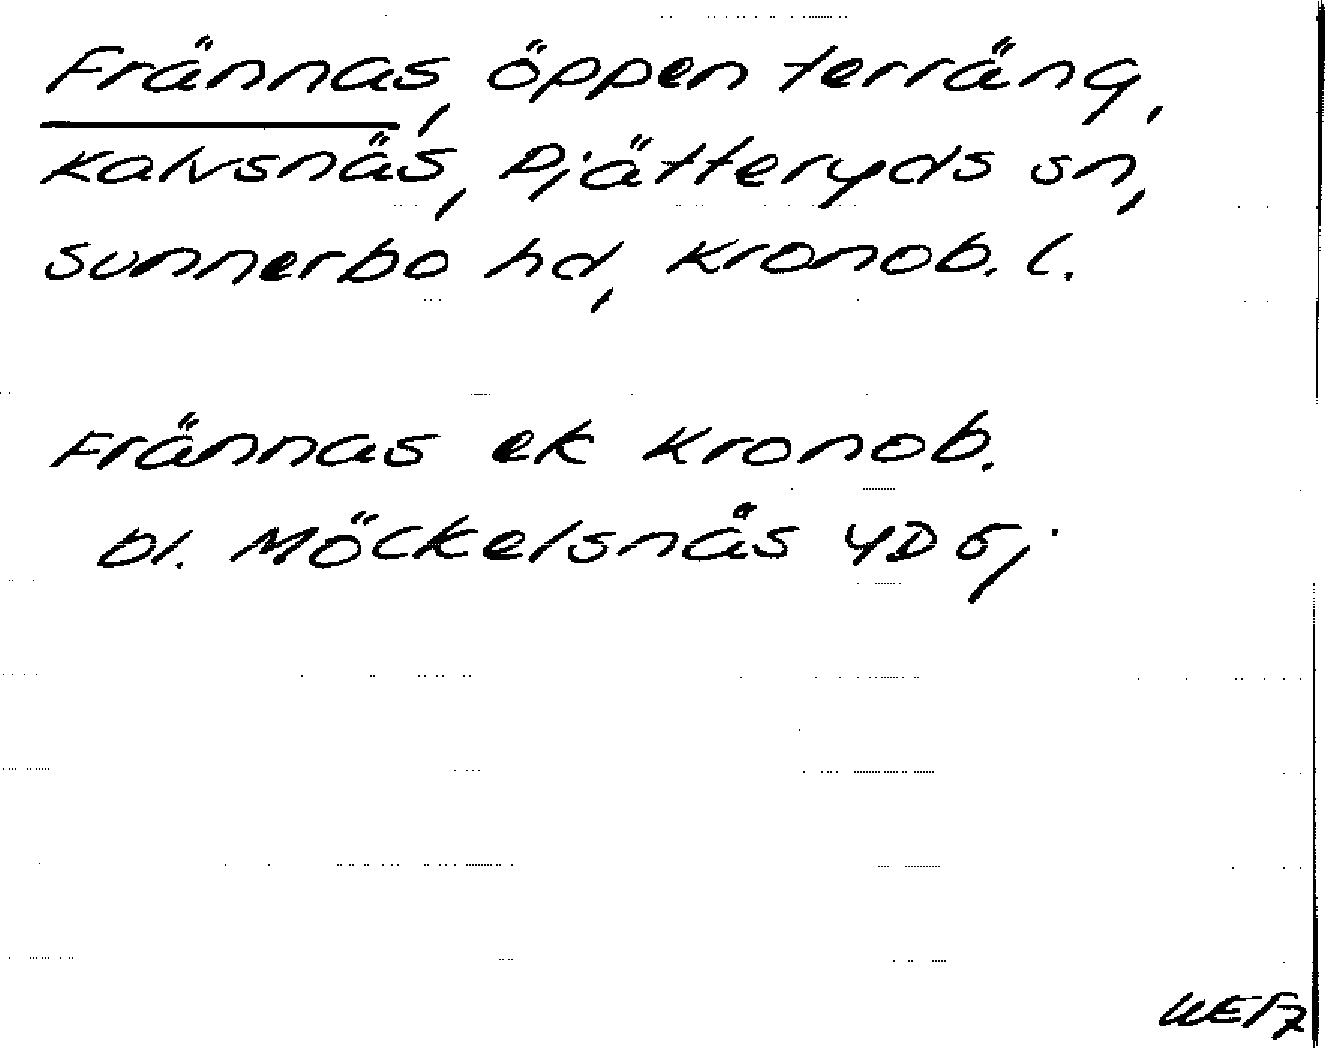 Frännas, öppen terräng,
Kalvsnäs, Pjätteryds sn,
Sunnerbo hd, Kronob. l.
Frännas ek Kronob.
bl. Möckelsnäs 4D 5j